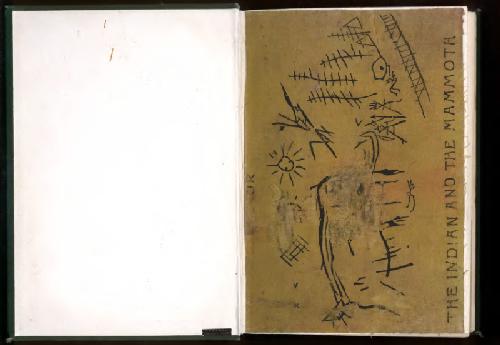 THE INDIAN AND THE MAMMOTH